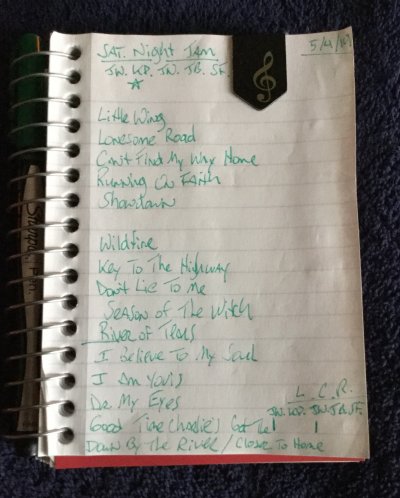 SAT. Night Jam
5/4/18
JW. KP. JN. JB. SF.
Little Wing
Lonesome Road
Can't Find My Way Home
Running On Faith
Showdown
Wildfire
Key To The Highway
Don't Lie To Me
Season of The Witch
River of Tears
I Believe To My Soul
I Am Yours
Dr. My Eyes
L. C. R.
JW. KP. JN. JB. SF.
Good Time Charlie's Got The
Down By The River / Close To Home
Sharpie